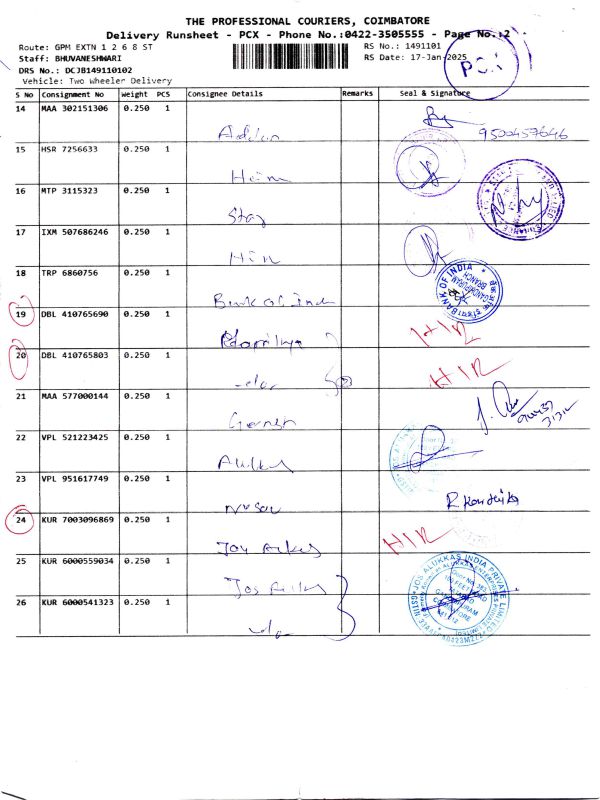 THE PROFESSIONAL COURIERS, COIMBATORE
Delivery Runsheet - PCX - Phone No.:0422-3505555 - Page No.:2
Route: GPM EXTN 1 2 6 8 ST
RS No.: 1491101
Staff: BHUVANESHWARI
RS Date: 17-Jan-2025
PCX
DRS No.: DCJB149110102
Vehicle: Two Wheeler Delivery
S No Consignment No Weight PCS Consignee Details Remarks Seal & Signature
14 MAA 302151306 0.250 1
9500457646
15 HSR 7256633 0.250 1
16 MTP 3115323 0.250 1
Stag
17 IXM 507686246 0.250 1
18 TRP 6860756 0.250 1
Bank of Ind
BANK OF INDIA
GANDHIPURAM
BRANCH
19 DBL 410765690 0.250 1
HIR
20 DBL 410765803 0.250 1
-do-
HIR
21 MAA 577000144 0.250 1
22 VPL 521223425 0.250 1
23 VPL 951617749 0.250 1
R Karthika
24 KUR 7003096869 0.250 1
Joy Alukas
HIR
25 KUR 6000559034 0.250 1
Jos Alukas
26 KUR 6000541323 0.250 1
-do-
JOY ALUKKAS INDIA PRIVATE LIMITED